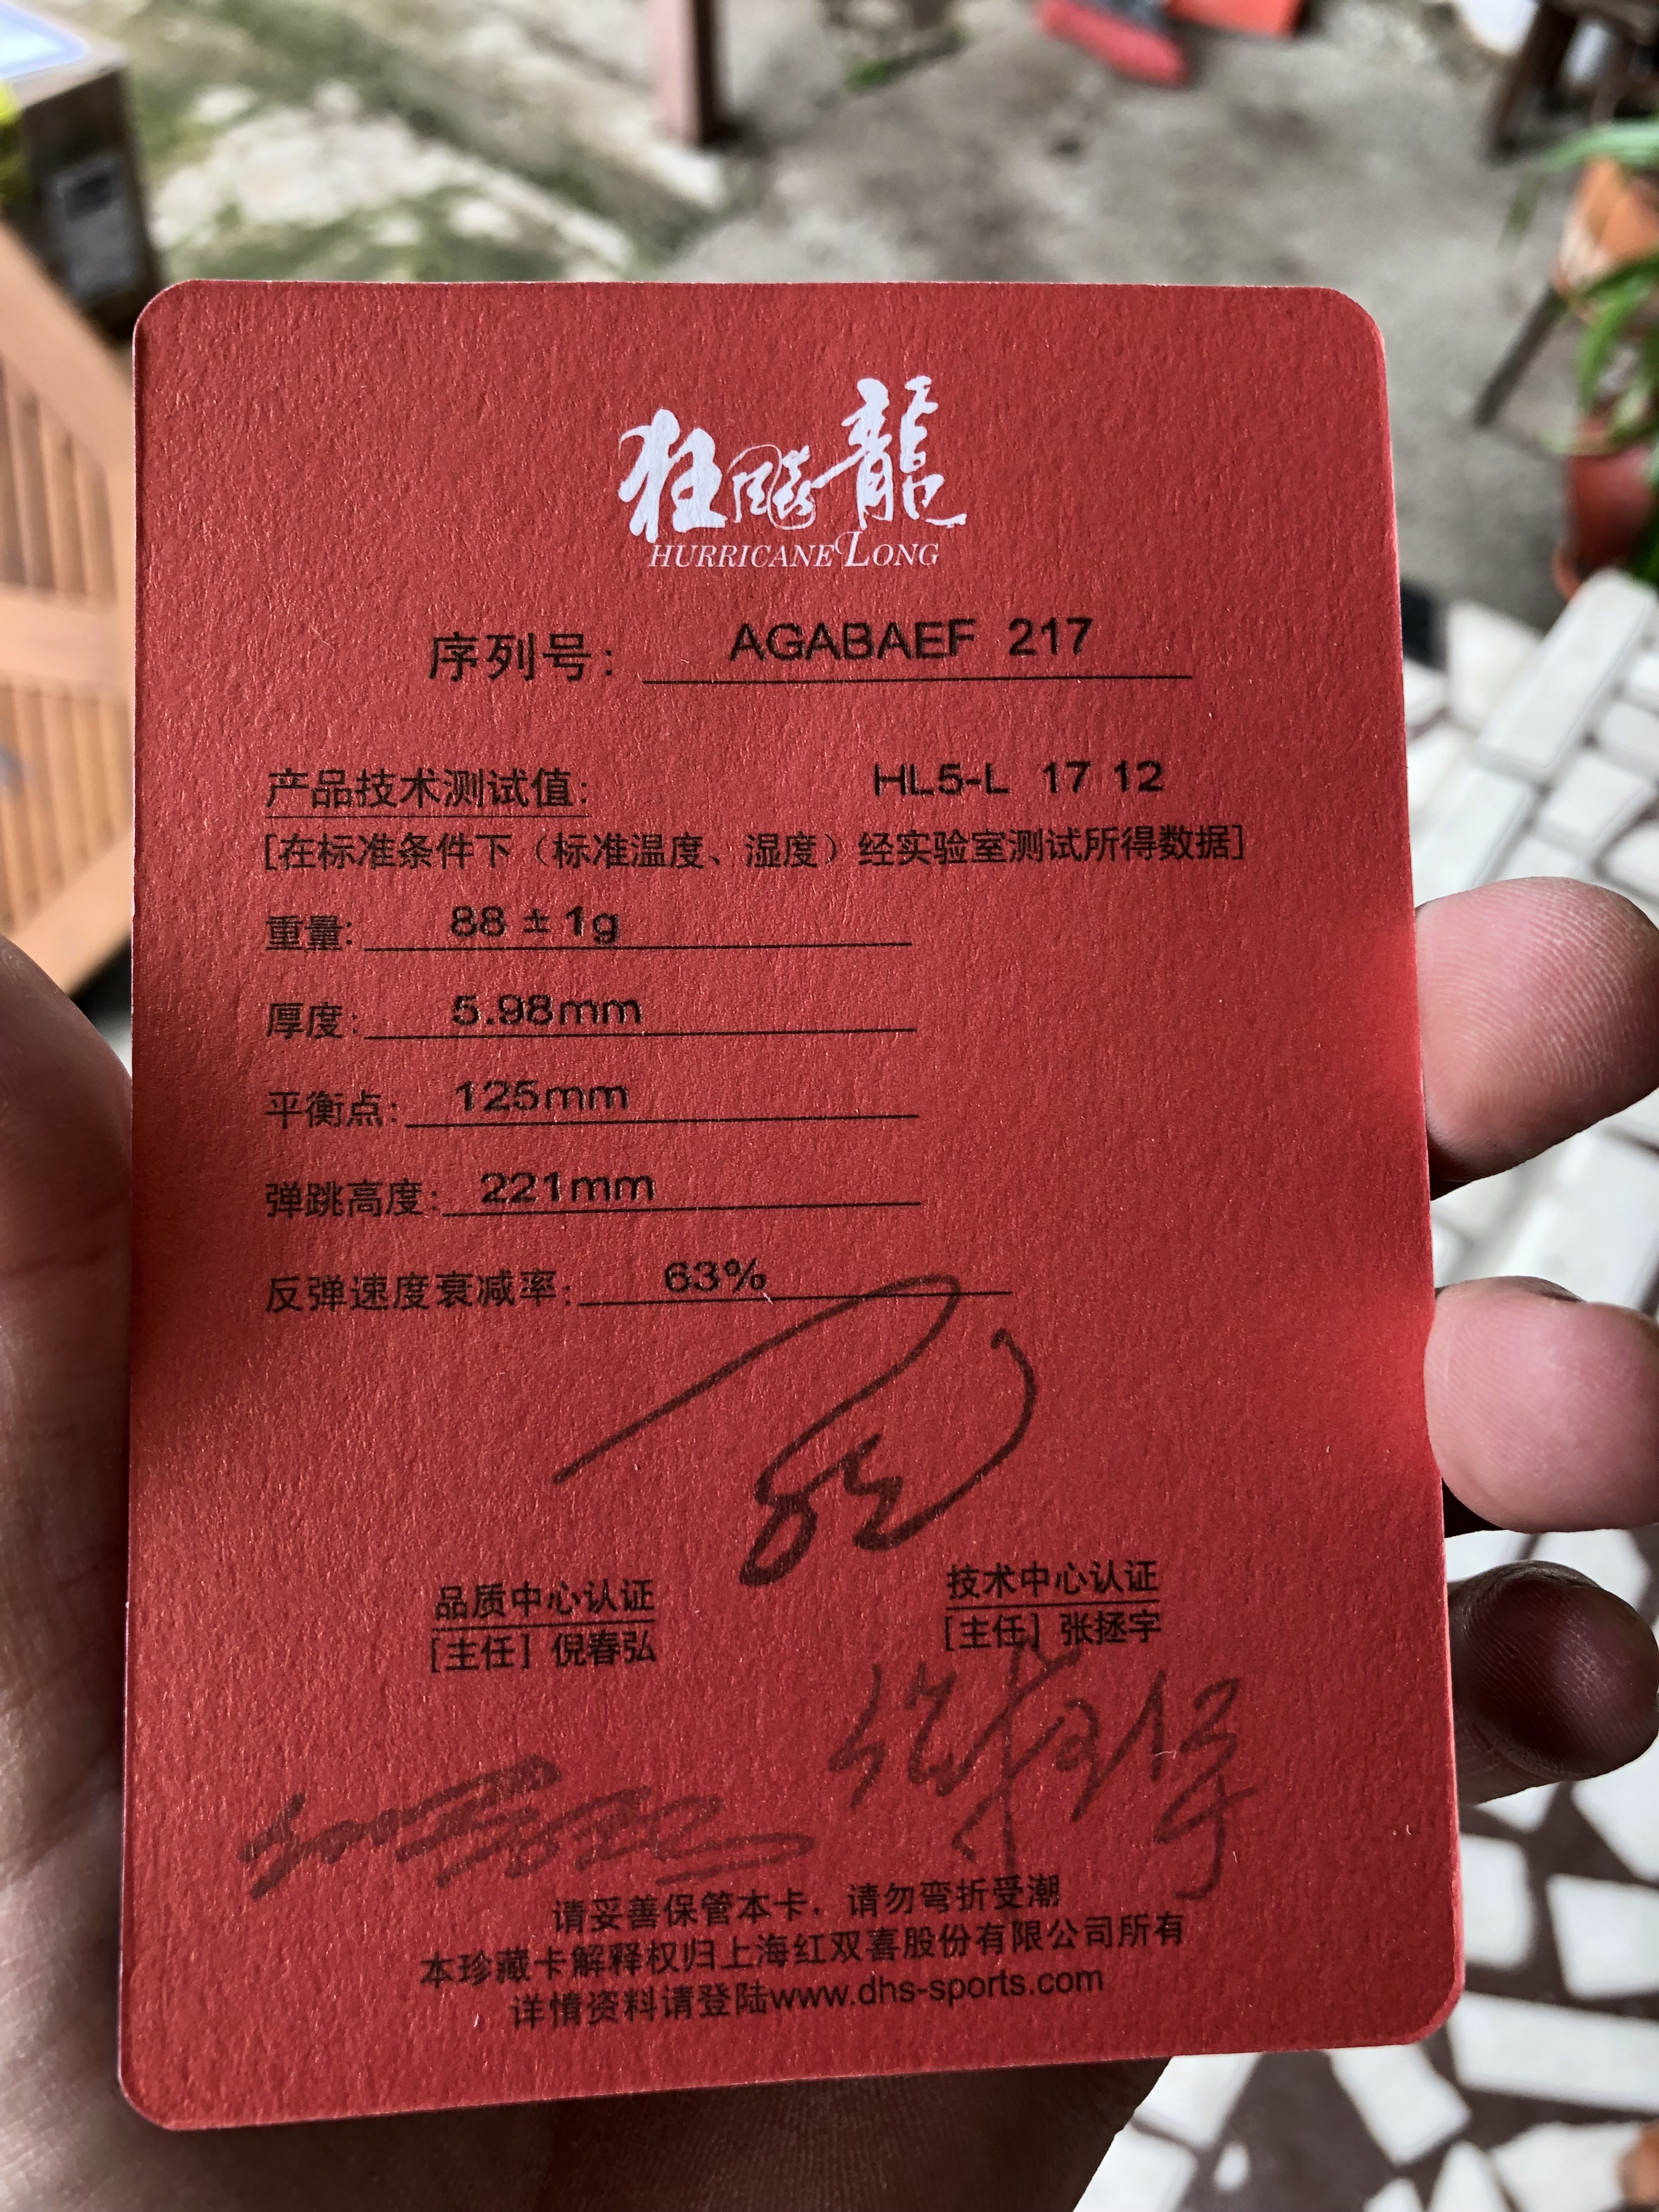 狂飚龍
HURRICANE LONG
序列号: AGABAEF 217
产品技术测试值: HL5-L 17 12
[在标准条件下（标准温度、湿度）经实验室测试所得数据]
重量: 88 ± 1g
厚度: 5.98mm
平衡点: 125mm
弹跳高度: 221mm
反弹速度衰减率: 63%
品质中心认证 技术中心认证
[主任] 倪春弘 [主任] 张拯宇
请妥善保管本卡，请勿弯折受潮
本珍藏卡解释权归上海红双喜股份有限公司所有
详情资料请登陆www.dhs-sports.com